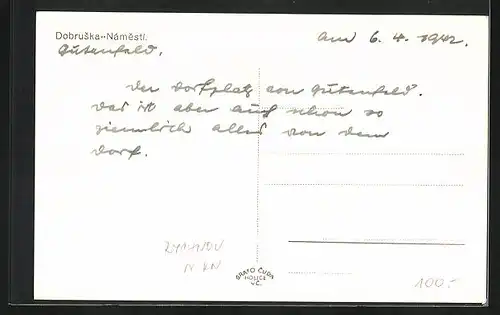 Dobruška-Náměstí.
Gutenfeld.
am 6. 4. 1942.
Der Dorfplatz von Gutenfeld.
Das ist aber auch schon so
ziemlich alles von dem
Dorf.
GRAFO ČUDA
HOLICE
V Č.
100.-